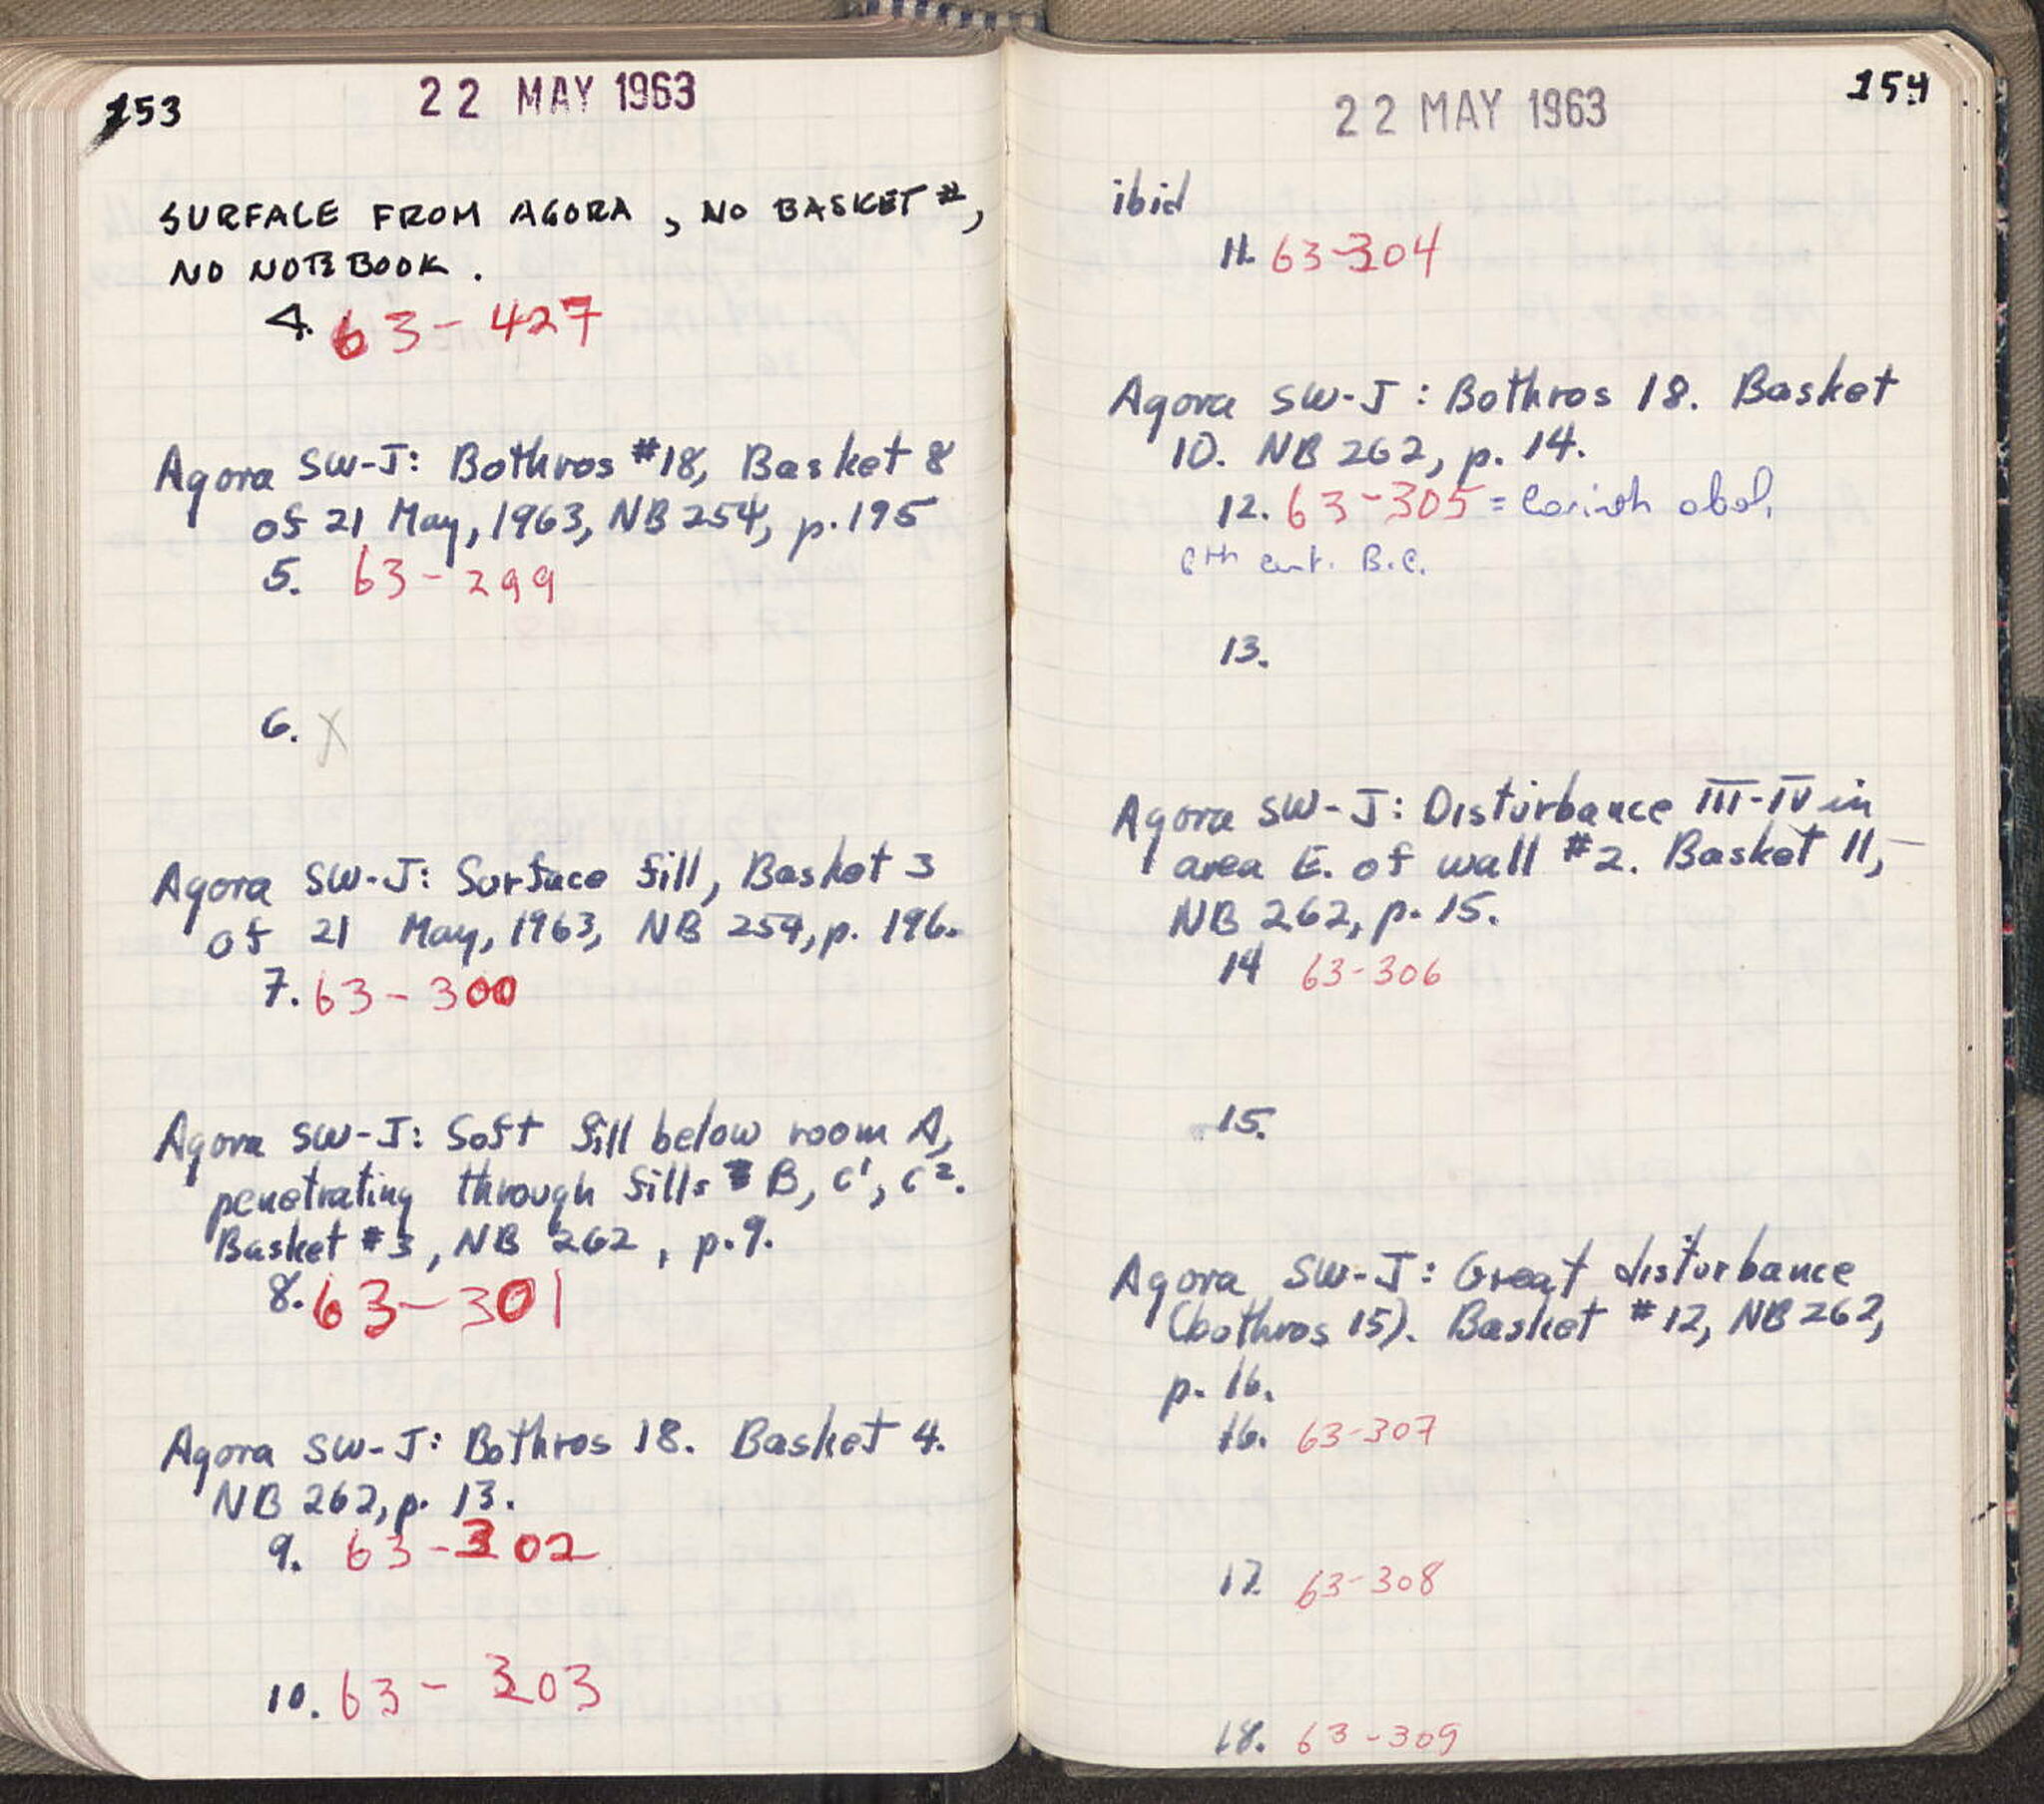 153
22 MAY 1963
SURFACE FROM AGORA, NO BASKET #,
NO NOTEBOOK.
4. 63-427
Agora SW-J: Bothros #18, Basket 8
of 21 May, 1963, NB 254, p. 195
5. 63-299
6. X
Agora SW-J: Surface fill, Basket 3
of 21 May, 1963, NB 254, p. 196.
7. 63-300
Agora SW-J: Soft fill below room A,
penetrating through fills B, C¹, C².
Basket #3, NB 262, p. 9.
8. 63-301
Agora SW-J: Bothros 18. Basket 4.
NB 262, p. 13.
9. 63-302
10. 63-303
154
22 MAY 1963
ibid
11. 63-304
Agora SW-J: Bothros 18. Basket
10. NB 262, p. 14.
12. 63-305 = Corinth obol,
6th cent. B.C.
13.
Agora SW-J: Disturbance III-IV in
area E. of wall #2. Basket 11,
NB 262, p. 15.
14 63-306
15.
Agora SW-J: Great disturbance
(bothros 15). Basket #12, NB 262,
p. 16.
16. 63-307
17. 63-308
18. 63-309